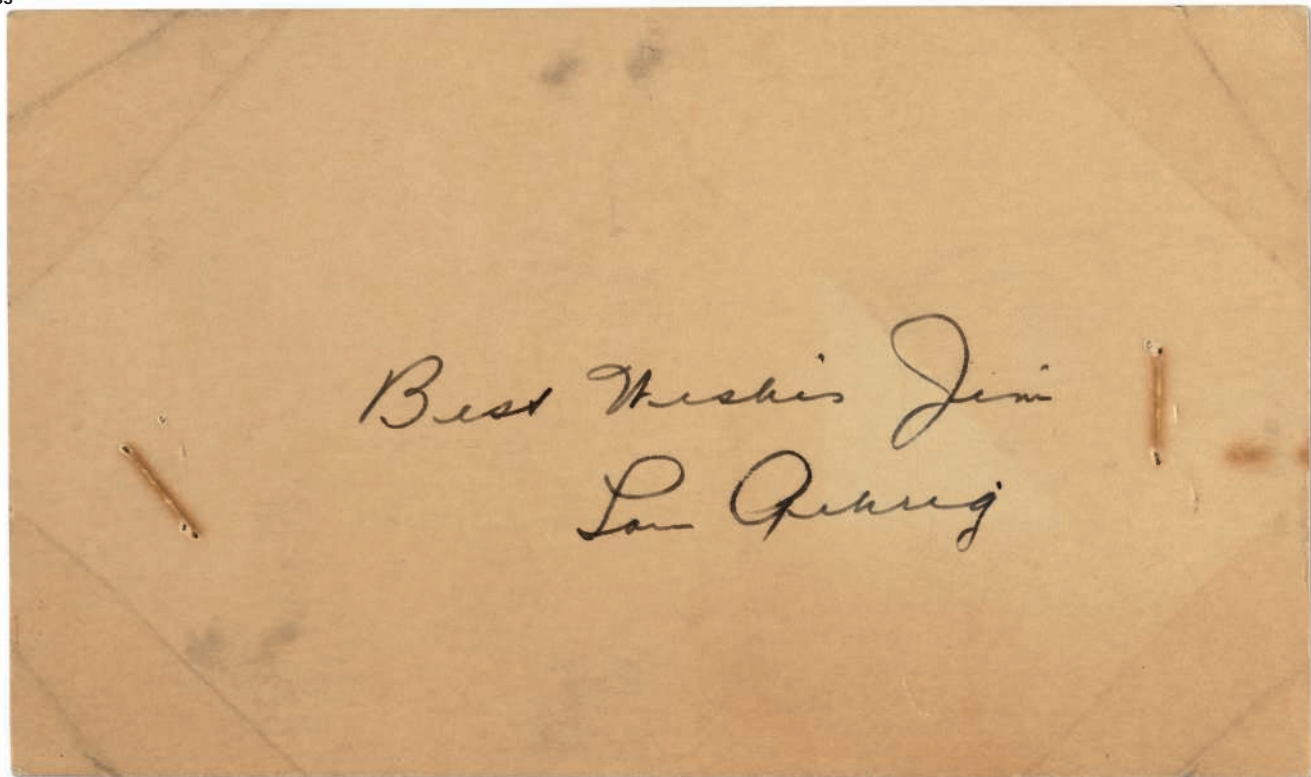 Best Wishes Jim
Lou Gehrig